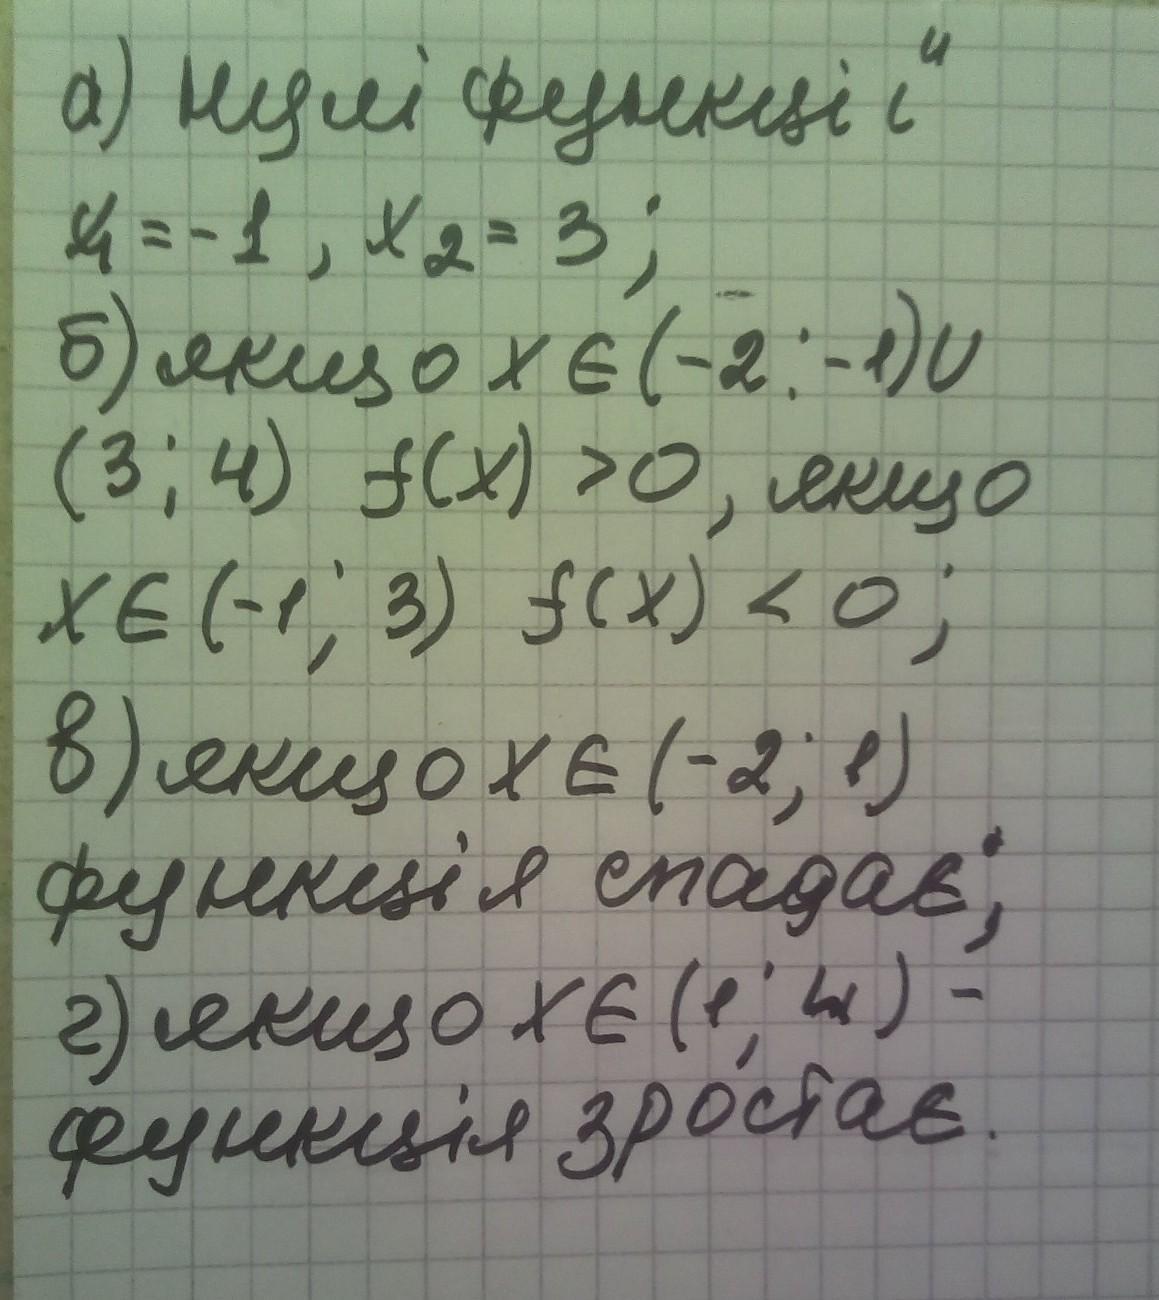 а) нулі функції
x₁ = -1, x₂ = 3;
б) якщо x ∈ (-2; -1) ∪
(3; 4) f(x) > 0, якщо
x ∈ (-1; 3) f(x) < 0;
в) якщо x ∈ (-2; 1)
функція спадає;
г) якщо x ∈ (1; 4) -
функція зростає.